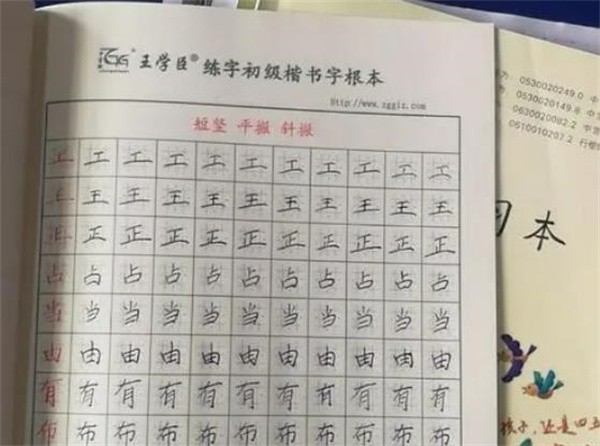 王学臣® 练字初级楷书字根本
Http://www.zggjz.com
短竖 平撇 斜撇
工 工 工 工 工 工 工 工 工 工 工
王 王 王 王 王 王 王 王 王 王 王
正 正 正 正 正 正 正 正 正 正 正
占 占 占 占 占 占 占 占 占 占 占
当 当 当 当 当 当 当 当 当 当 当
由 由 由 由 由 由 由 由 由 由 由
有 有 有 有 有 有 有 有 有 有 有
布 布 布 布 布 布 布 布 布 布 布
为: 0530020249.0 中
0530020149.8 中
0630020082.2 中
0610010207.2 行楷
本
孩子,还是四五